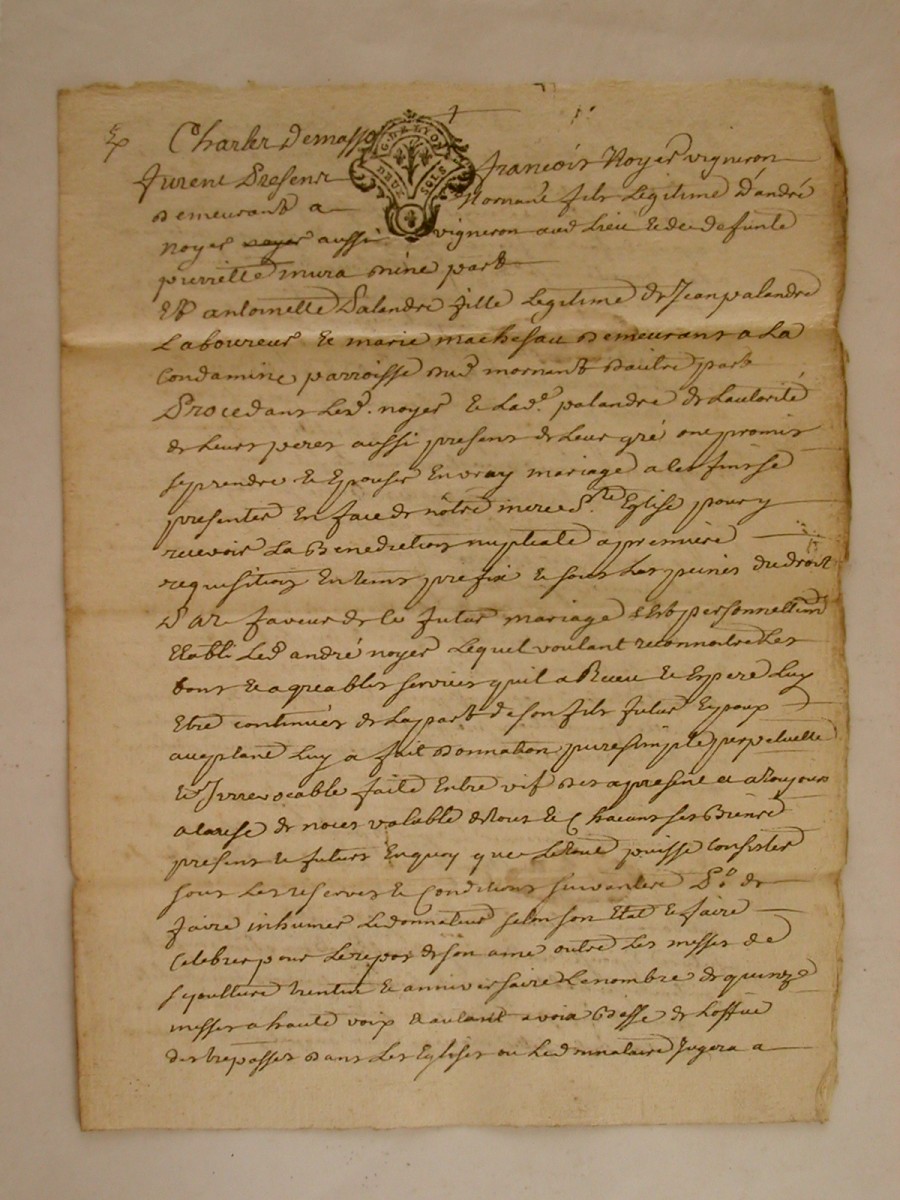 Charles Demasso
G. D. LYON
DEUX SOLS
furent Presens françois Noyer vigneron
demeurant a Mornant fils Legitime D'andré
Noyer aussi vigneron aud Lieu & de deffunte
pierrette mura d'une part
Et antoinette Palandre fille Legitime de Jean palandre
Laboureur & marie demeurant a La
Condamine parroisse dud mornant d'autre part
Procedans Led. noyer & Lad.e palandre de L'autorité
de Leurs peres aussi presens de Leur gré ont promis
se prendre & Epouser En vray mariage a Les fins se
presenter En face de nôtre mere S.te Eglise pour y
recevoir La Benediction nuptiale a premiere
requisition En tems prefix & sous Les peines du droit
faveur de futur mariage s'est personnellemt
Etabli Led andré noyer Lequel voulant reconnoitre Les
bons & agreables services qu'il a Receu & Espere Luy
Etre continués de La part de son fils futur Epoux
acceptant Luy a fait donnation pure simple perpetuelle
& Irrevocable faite Entre vif des apresent & a toujours
de noces valable de tous & Chacuns ses Biens
presens & futurs En quoy que Le tout puisse Consister
sous Les reserves & Conditions suivantes de
faire inhumer Le donnateur selon son Etat & faire
Celebrer pour Le repos de son ame outre Les messes de
sepulture & anniversaire Le nombre de quinze
messes a haute voix & autant a voix Basse de L'office
des trepasses dans Les Eglises ou Le donnataire Jugera a